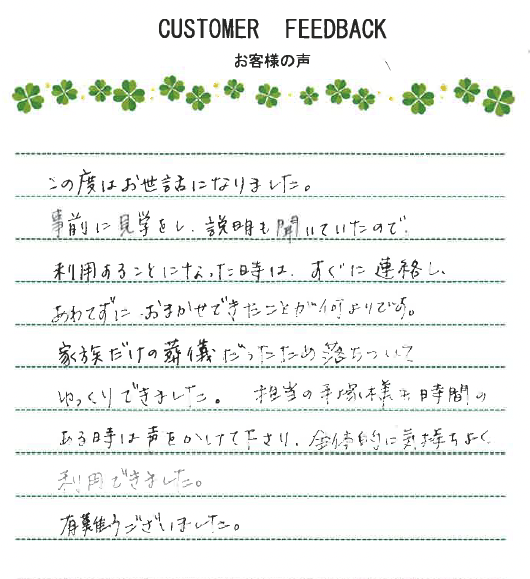 CUSTOMER FEEDBACK
お客様の声
この度はお世話になりました。
事前に見学をし、説明も聞いていたので、
利用あることになった時は、すぐに連絡し、
あわてずに、おまかせできたことが何よりです。
家族だけの葬儀だったため落ちついて
ゆっくりできました。 担当の手塚様も時間の
ある時は声をかけて下さり、全体的に気持ちよく
利用できました。
有難うございました。